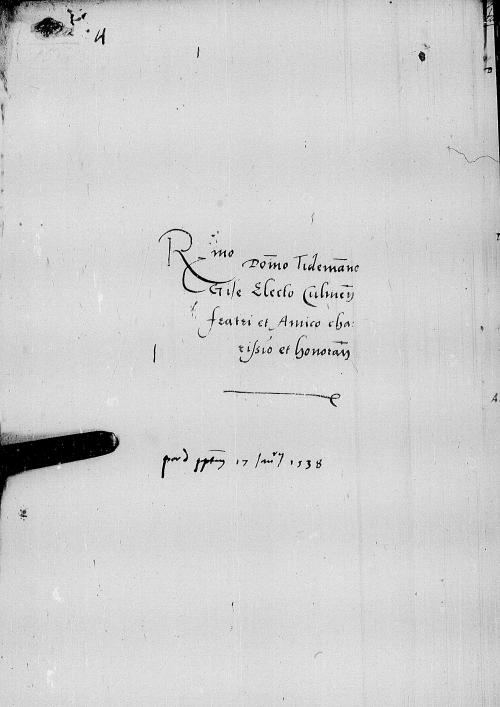 R mo Domo Tidemano
Gise Electo Culmen
fratri et Amico cha:
rissio et honoran
17 1538